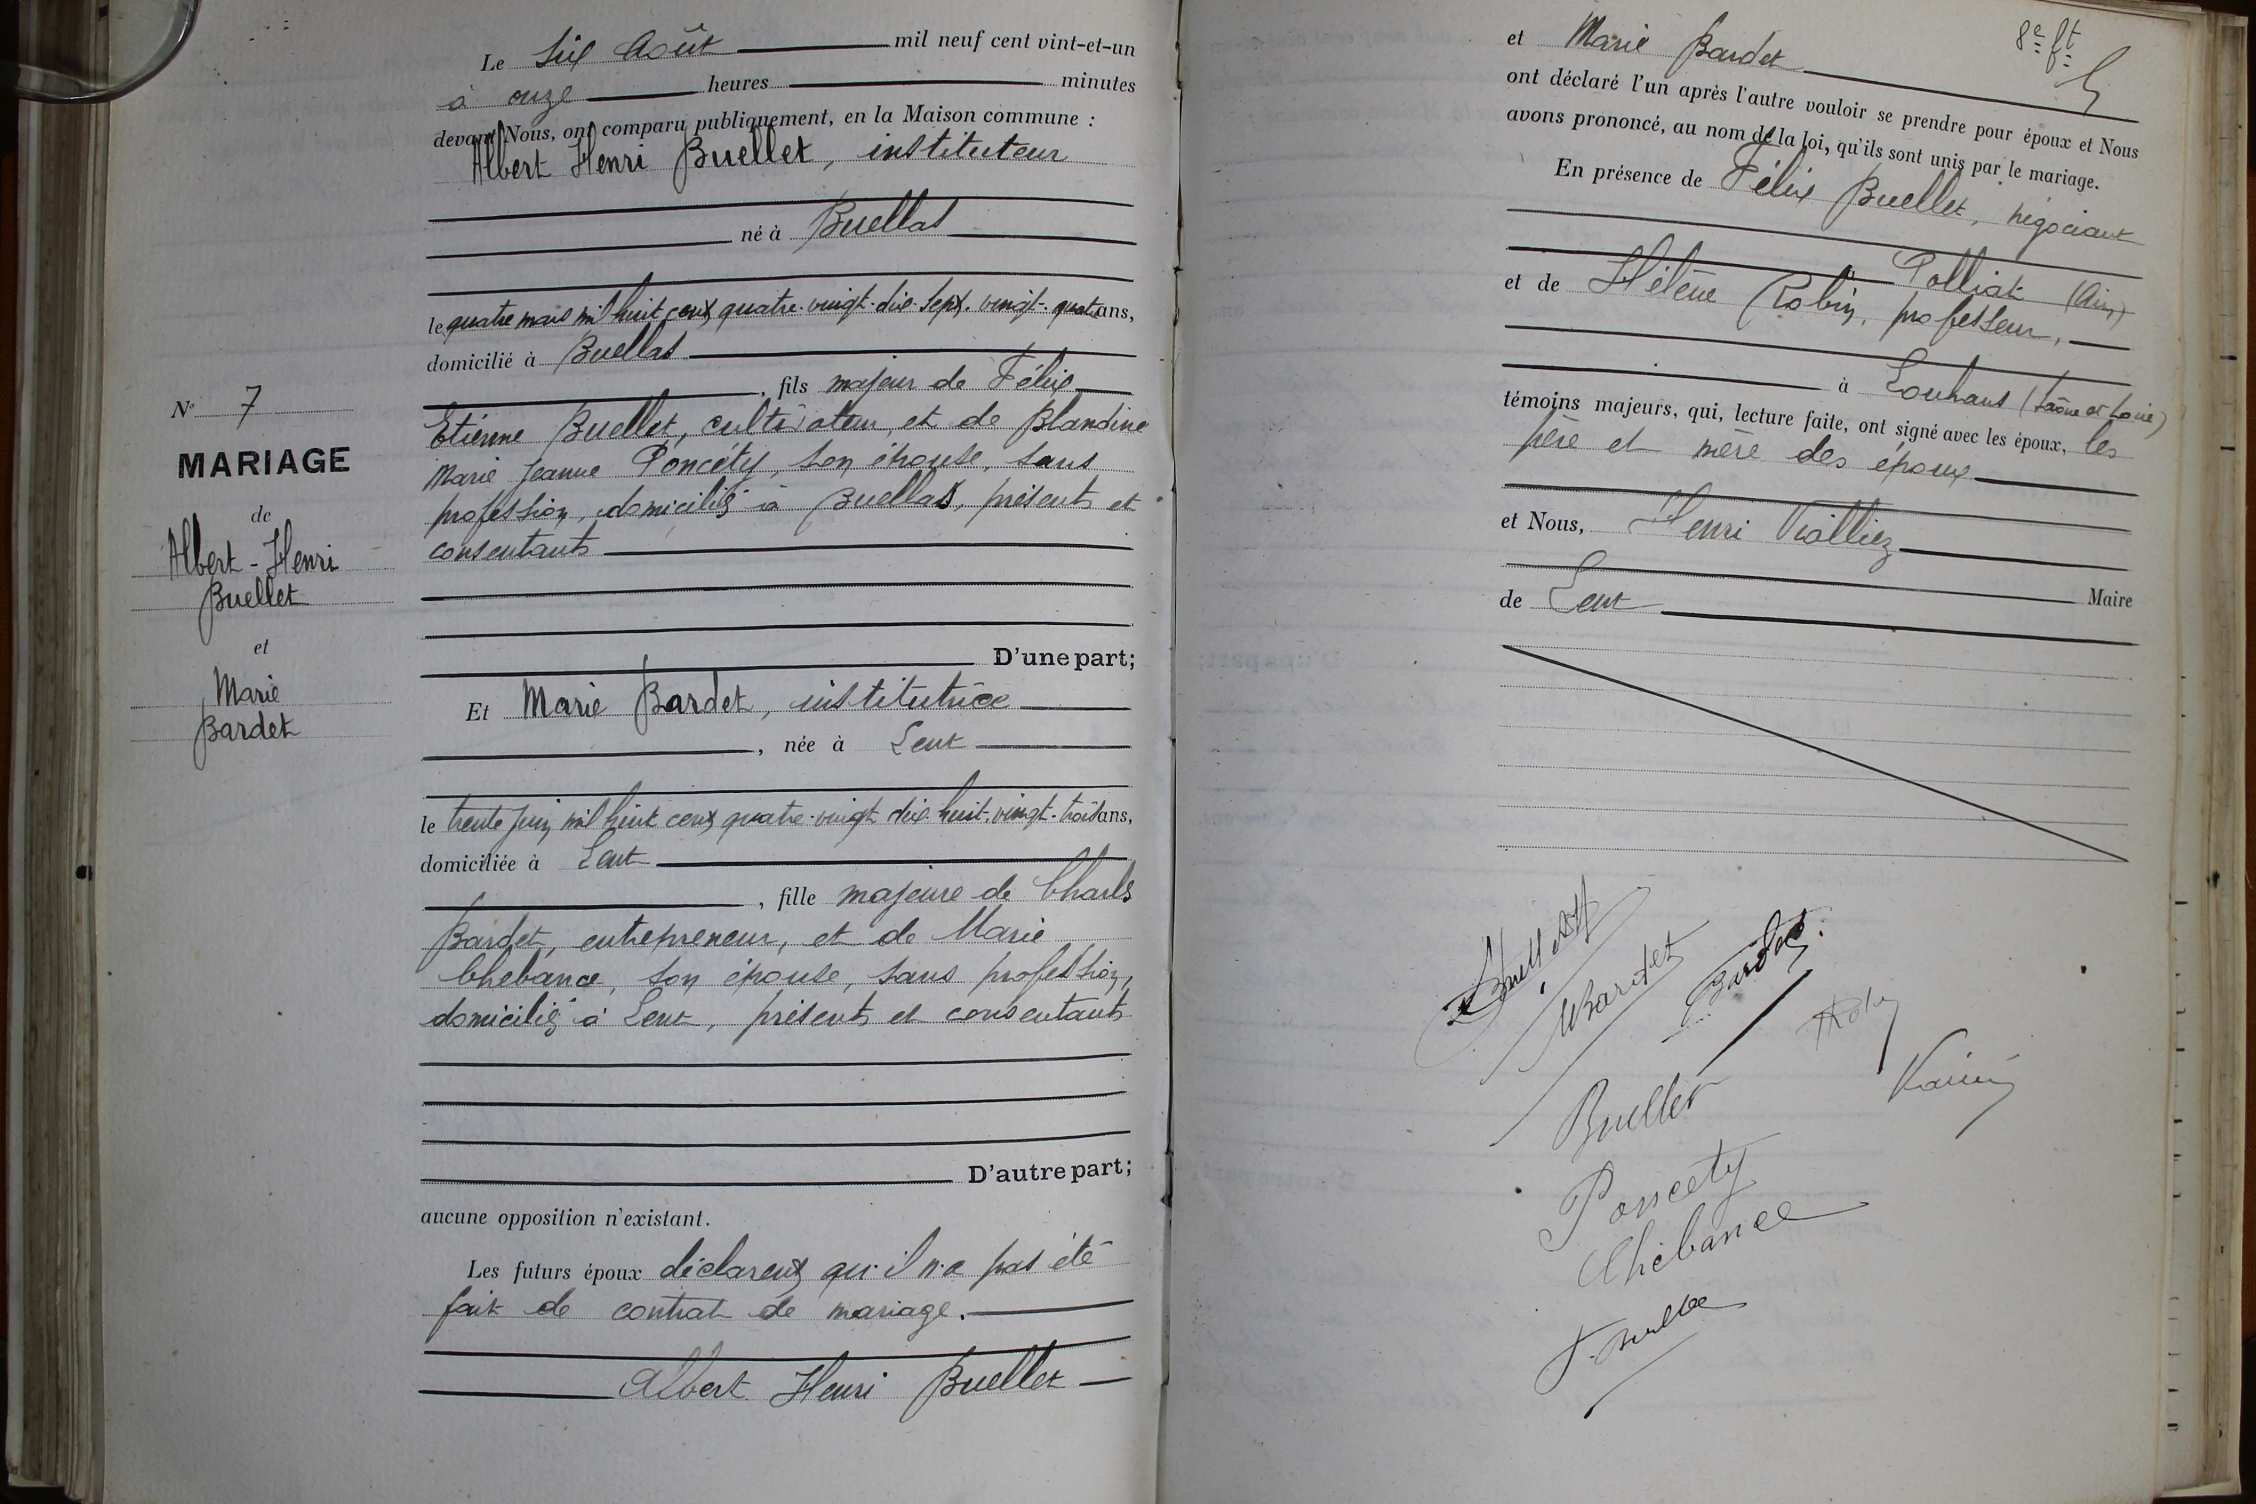 Le six Août mil neuf cent vint-et-un
à onze heures minutes
devant Nous, ont comparu publiquement, en la Maison commune :
Albert Henri Buellet, instituteur
né à Buellas
le quatre mars mil huit cent quatre-vingt-dix-sept, vingt-quatre ans,
domicilié à Buellas
, fils majeur de Félix
Etienne Buellet, cultivateur, et de Blandine
Marie Jeanne Poncéty, son épouse, sans
profession, domiciliés à Buellas, présents et
consentants
D'une part;
Et Marie Bardet, institutrice
, née à Lent
le trente juin mil huit cent quatre-vingt dix huit, vingt-trois ans,
domiciliée à Lent
, fille majeure de Charles
Bardet, entrepreneur, et de Marie
Chebance, son épouse, sans profession,
domiciliés à Lent, présents et consentants
D'autre part;
aucune opposition n'existant.
Les futurs époux déclarent qu'il n'a pas été
fait de contrat de mariage.
Albert Henri Buellet
N° 7
MARIAGE
de
Albert-Henri
Buellet
et
Marie
Bardet
8e ft
et Marie Bardet
ont déclaré l'un après l'autre vouloir se prendre pour époux et Nous
avons prononcé, au nom de la loi, qu'ils sont unis par le mariage.
En présence de Félix Buellet, négociant
Polliat (Ain)
et de Hélène Robin, professeur,
à Louhans (Saône et Loire)
témoins majeurs, qui, lecture faite, ont signé avec les époux, les
père et mère des époux
et Nous, Henri Vialliez
Maire
de Lent
MBardet
Bardet
Buellet
Poncety
Chébance